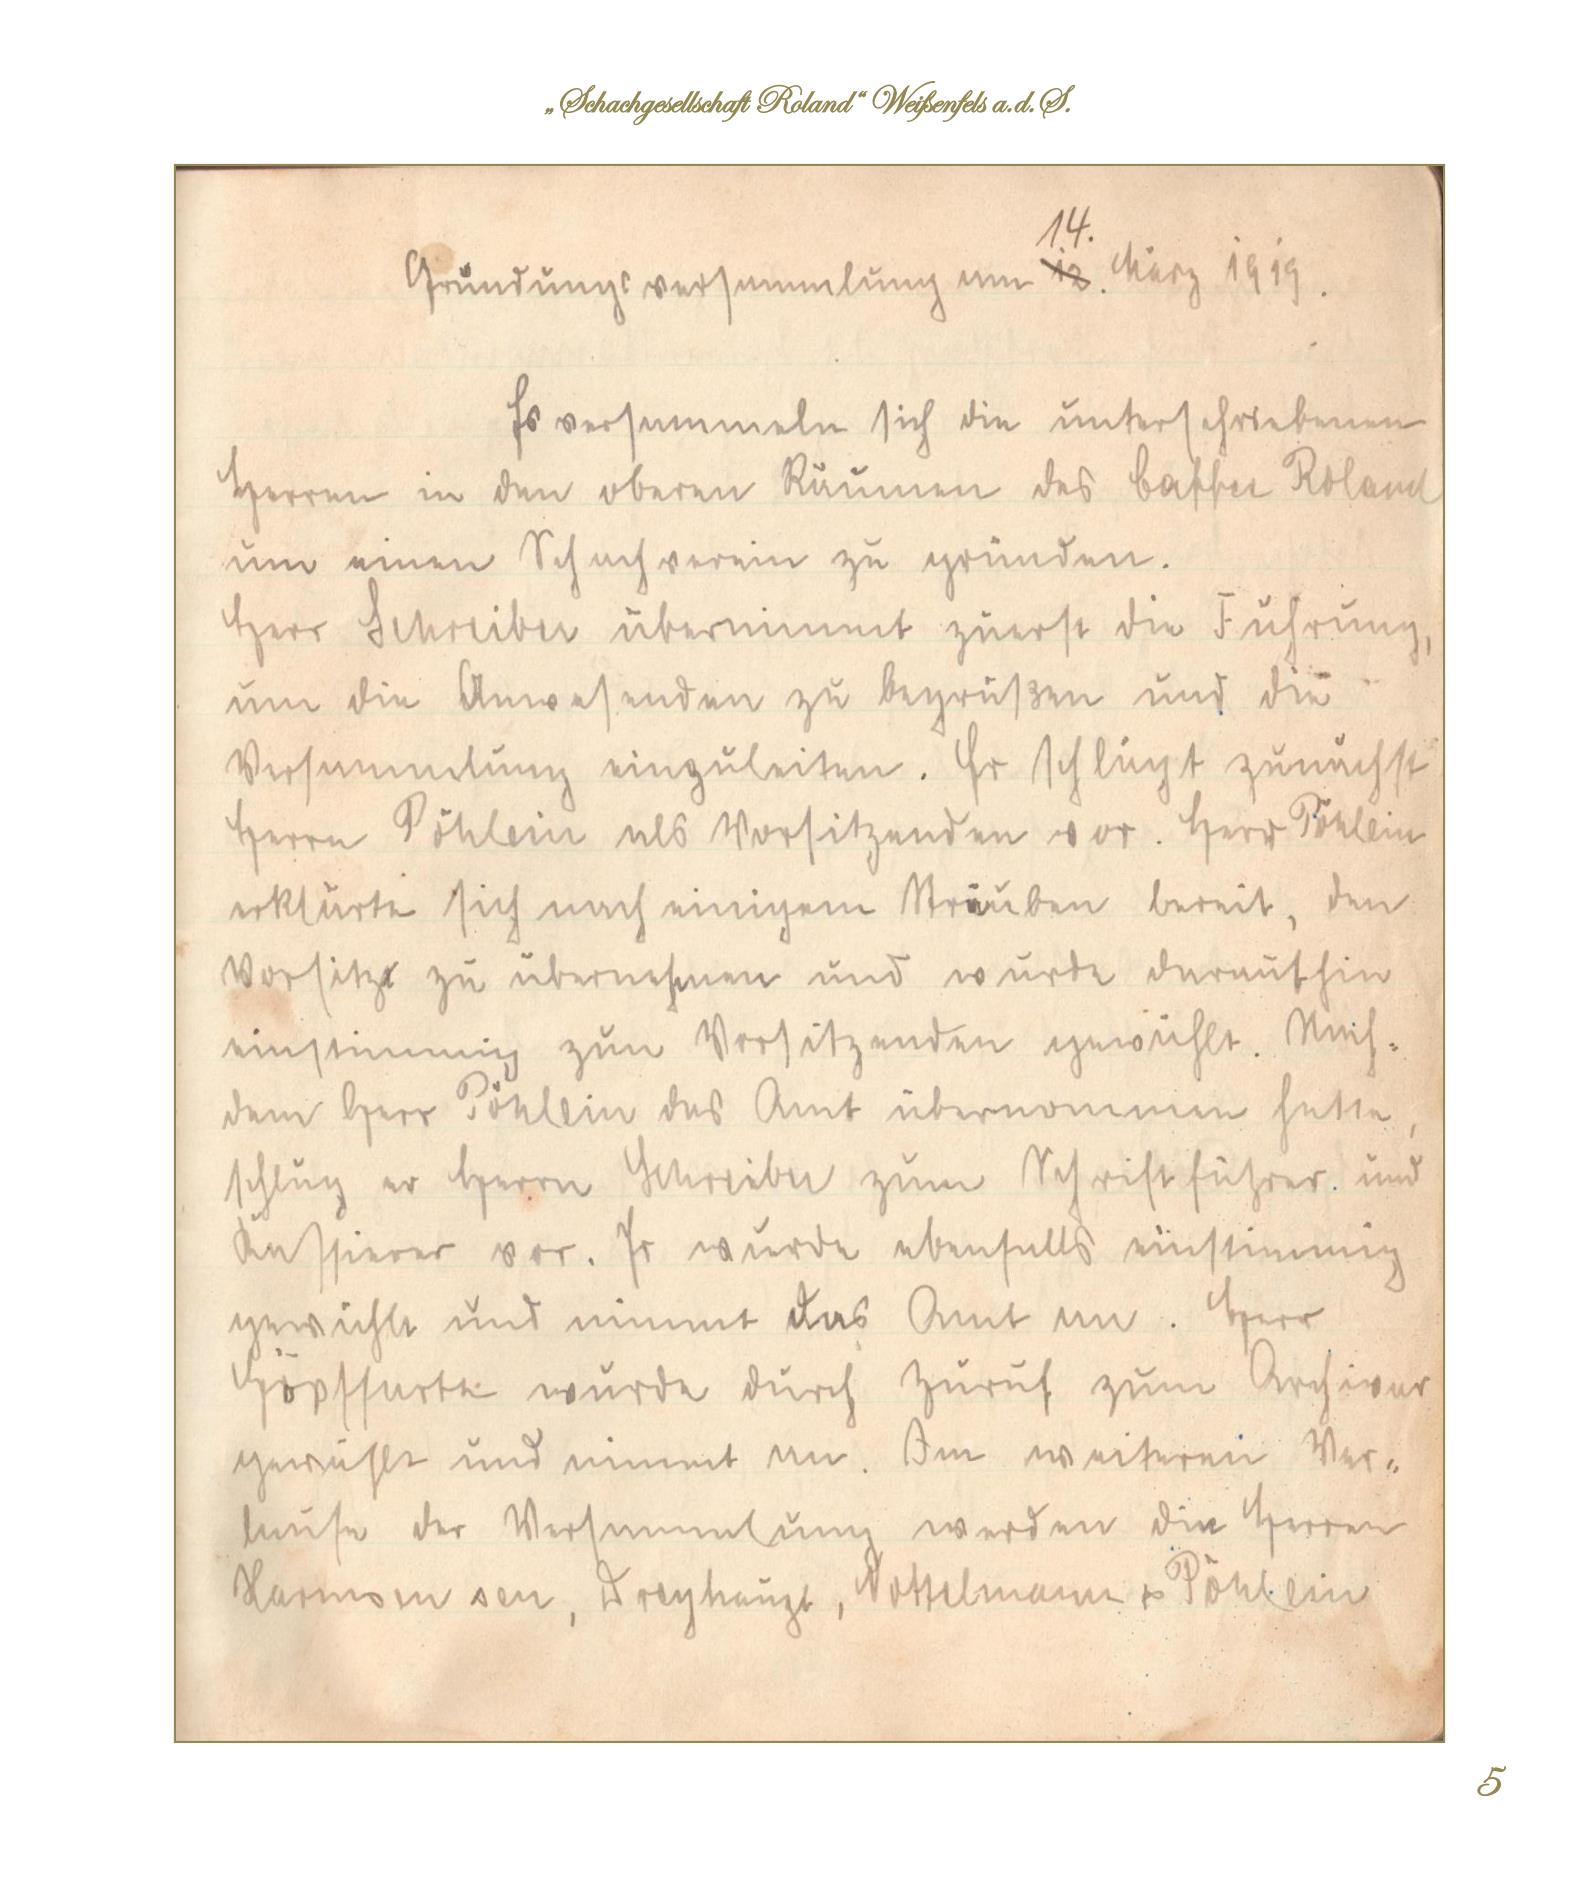 „Schachgesellschaft Roland“ Weißenfels a.d.S.
14.
Gründungsversammlung am 12. März 1919.
Es versammeln sich die unterschriebenen
Herren in den oberen Räumen des Caffee Roland
um einen Schachverein zu gründen.
Herr Schreiber übernimmt zuerst die Führung,
um die Anwesenden zu begrüßen und die
Versammlung einzuleiten. Er schlägt zunächst
Herrn Pöhlein als Vorsitzenden vor. Herr Pöhlein
erklärte sich nach einigem Sträuben bereit, den
Vorsitz zu übernehmen und wurde daraufhin
einstimmig zum Vorsitzenden gewählt. Nach-
dem Herr Pöhlein das Amt übernommen hatte,
schlug er Herrn Schreiber zum Schriftführer und
Kassierer vor. Er wurde ebenfalls einstimmig
gewählt und nimmt das Amt an. Herr
wurde durch Zuruf zum Archivar
gewählt und nimmt an. Im weiteren Ver-
laufe der Versammlung werden die Herren
Dreyhaupt, Nottelmann & Pöhlein
5